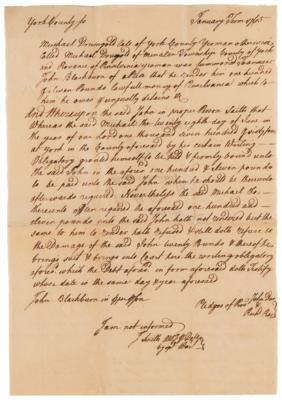 York County ss January Term 1765
Michael Drumgold late of York County Yeoman otherwise
Called Michael Drumgold of Township County of York
and Province of Pensilvania yeoman was Summoned to answer
John Blackburn of a Plea that he render him one hundred
& eleven Pounds lawfull money of Pensilvania which to
him he owes & unjustly detains &c
And Whereupon the said John in proper Person Saith that
Whereas the said Michael the twenty eighth day of June in
the year of our Lord one thousand seven hundred &
at York in the County aforesaid by his certain Writing
Obligatory granted himself to be held & firmly bound unto
the said John in the afored one hundred & eleven pounds
to be paid unto the said John when he should be thereunto
afterwards required Nevertheless the said Michael tho
thereunto often required the aforesaid one hundred and
eleven pounds unto the said John hath not rendered but the
same to him to render hath refused & still doth refuse to
the Damage of the said John twenty Pounds & thereof he
brings suit & brings into Court here the writing obligatory
afored which the Debt afored in form aforesaid doth testify
whose date is the same day & year aforesaid
John Blackburn in Person Pledges of John Doe
Rich Roe
I am not informed
Smith